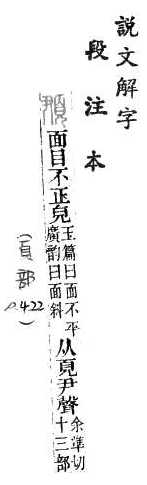 說文解字
段注本
頵
面目不正皃玉篇曰面不平
廣韵曰面斜
从頁尹聲余準切
十三部
(頁部
p.422)